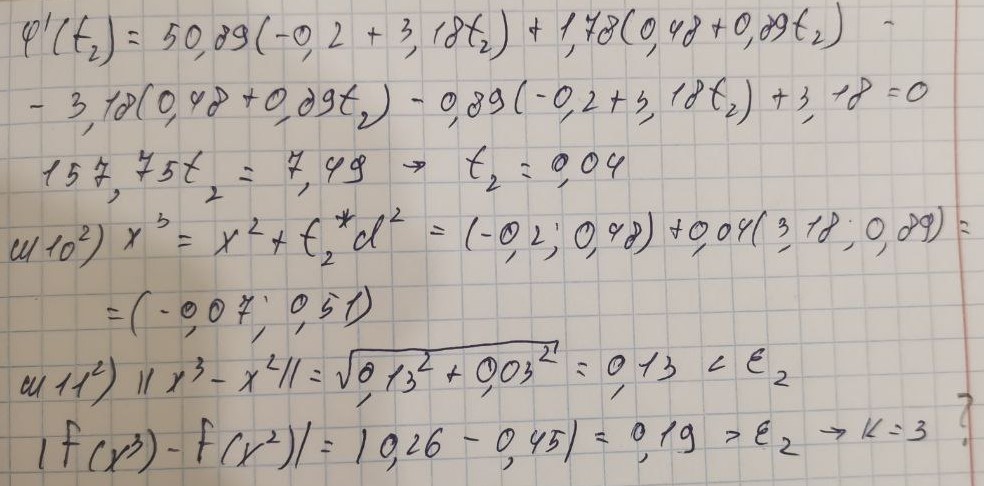 φ'(t₂) = 50,89(-0,2 + 3,18t₂) + 1,78(0,48+0,89t₂) -
- 3,18(0,48+0,89t₂) - 0,89(-0,2+3,18t₂) + 3,18 = 0
157,75t₂ = 7,49 → t₂ = 0,04
ш10²) x³ = x² + t₂*d² = (-0,2; 0,48) + 0,04(3,18; 0,89) =
= (-0,07; 0,51)
ш11²) ||x³ - x²|| = √0,13² + 0,03² = 0,13 < ε₂
|f(x³) - f(x²)| = |0,26 - 0,45| = 0,19 > ε₂ → K = 3 ?